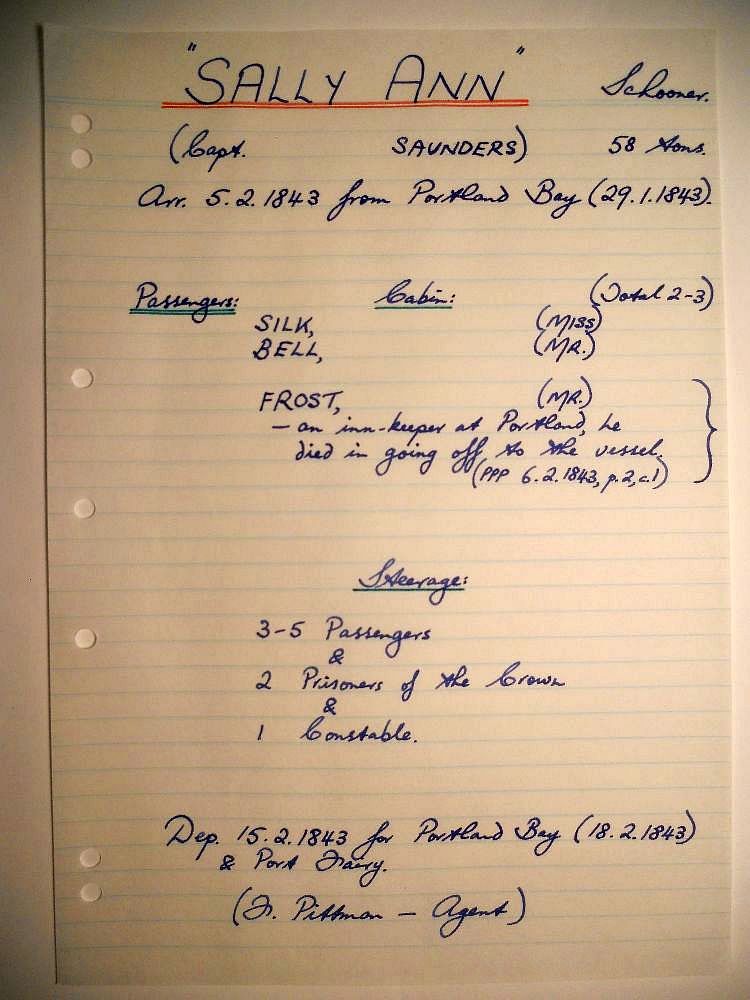 "SALLY ANN" Schooner.
(Capt. SAUNDERS) 58 tons.
Arr. 5.2.1843 from Portland Bay (29.1.1843).
Passengers: Cabin: (Total 2-3)
SILK, (MISS)
BELL, (MR.)
FROST, (MR.)
- an inn-keeper at Portland, he
died in going off to the vessel.
(PPP 6.2.1843, p.2, c.1)
Steerage:
3-5 Passengers
&
2 Prisoners of the Crown
&
1 Constable.
Dep. 15.2.1843 for Portland Bay (18.2.1843)
& Port Fairy.
(F. Pittman - Agent)